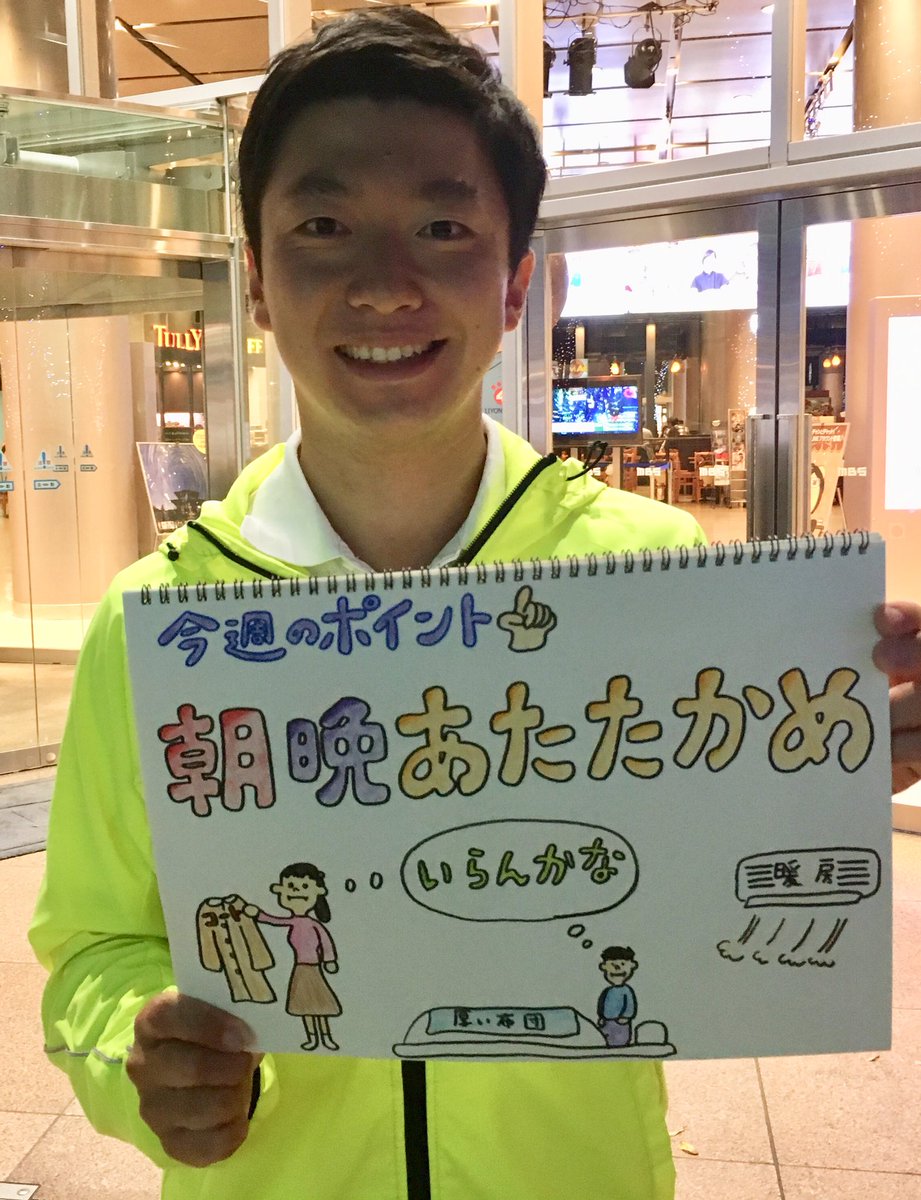 TULLY
FF
LIYON
MBS
MBS
今週のポイント
朝晩あたたかめ
いらんかな
暖房
コート
厚い布団